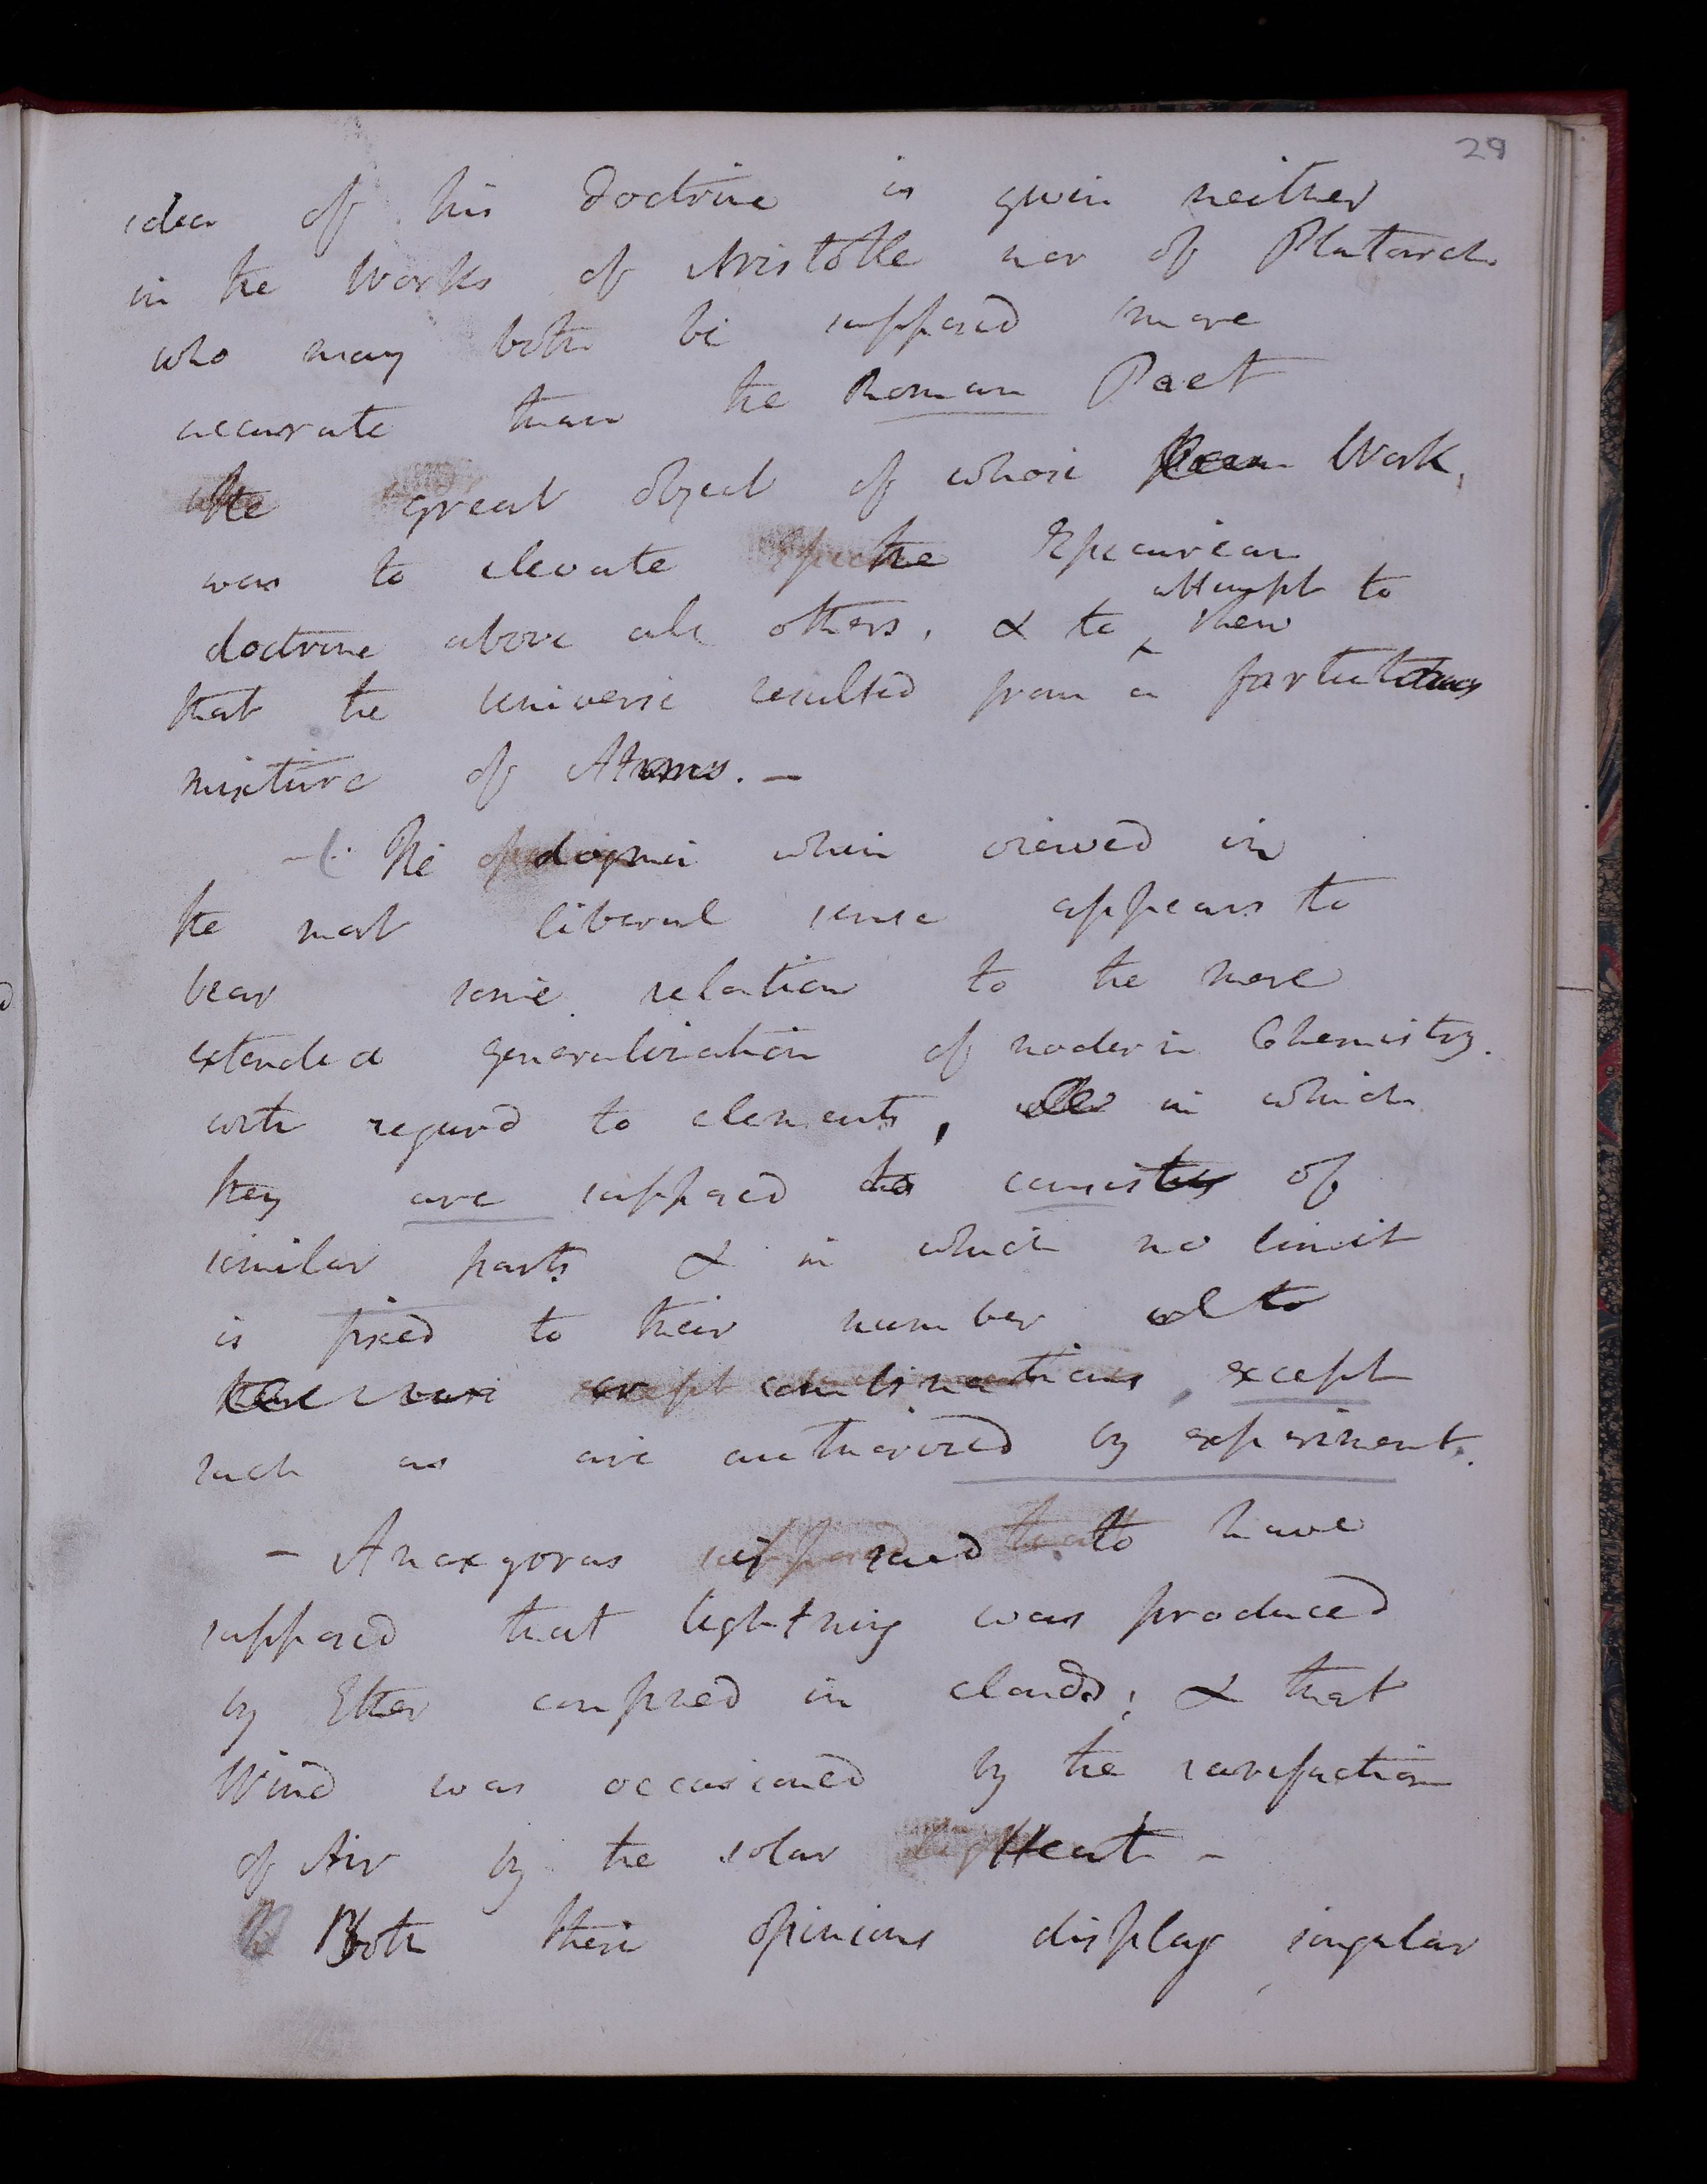 29
idea of his doctrine is given neither
in the Works of Aristotle nor of Plutarch
who may both be supposed more
accurate than the Roman Poet
The great object of whose Work,
was to elevate the Epicurean
attempt to
doctrine above all others, & to shew
that the universe resulted from a fortuitous
mixture of Atoms. —
— The dogma when viewed in
the most liberal sense appears to
bear some relation to the more
extended generalization of modern Chemistry.
with regard to elements, in which
they are supposed to consist of
similar parts & in which no limit
is fixed to their number
combinations, except
such as are authorized by experiment.
— Anaxgoras is said to have
supposed that lightning was produced
by Ether confined in clouds; & that
Wind was occasioned by the rarefaction
of Air by the solar Heat —
Both these opinions display singular